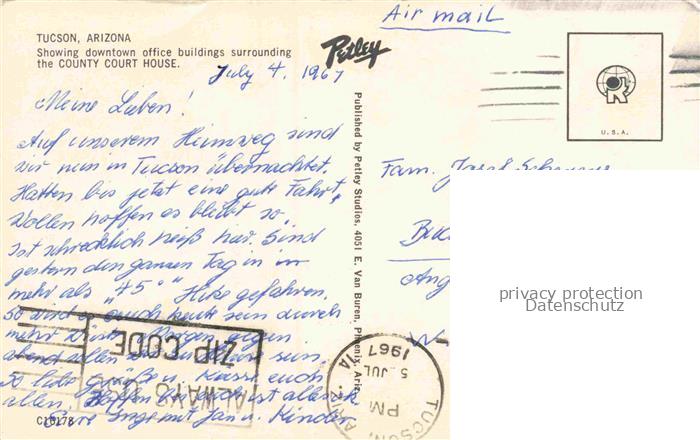 TUCSON, ARIZONA
Showing downtown office buildings surrounding
the COUNTY COURT HOUSE.
Petley
Air mail
U.S.A.
July 4, 1967
Meine Lieben!
Auf unserem Heimweg sind
wir nun in Tucson übernachtet.
Hatten bis jetzt eine gute Fahrt,
wollen hoffen es bleibt so.
Ist schrecklich heiß hier. Sind
gestern den ganzen Tag in
mehr als "45°" Hitze gefahren.
So wird es auch heute sein durch
mehr gegen
abend sein.
So liebe Grüße u. Küsse euch
allen. Hoffen bei euch ist alles ok
Eure Inge mit Jan u. Kinder
C16178
Published by Petley Studios, 4051 E. Van Buren, Phoenix, Ariz.
Fam. Josef
privacy protection
Datenschutz
ALWAYS USE
ZIP CODE
TUCSON, ARIZONA
PM
5 JUL
1967